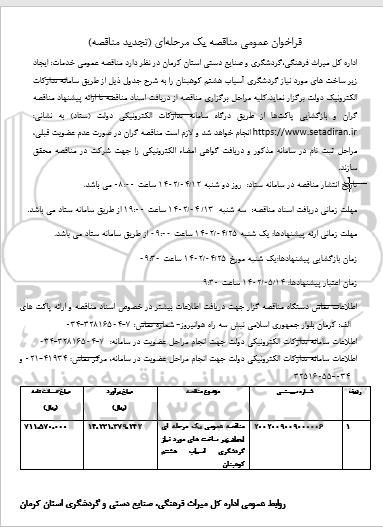 فراخوان عمومی مناقصه یک مرحله‌ای (تجدید مناقصه)
اداره کل میراث فرهنگی،گردشگری و صنایع دستی استان کرمان در نظر دارد مناقصه عمومی خدمات: ایجاد
زیر ساخت های مورد نیاز گردشگری آسیاب هشتم کوهبنان را به شرح جدول ذیل از طریق سامانه تدارکات
الکترونیک دولت برگزار نماید.کلیه مراحل برگزاری مناقصه از دریافت اسناد مناقصه تا ارائه پیشنهاد مناقصه
گران و بازگشایی پاکت‌ها از طریق درگاه سامانه تدارکات الکترونیکی دولت (ستاد) به نشانی:
https://www.setadiran.ir انجام خواهد شد و لازم است مناقصه گران در صورت عدم عضویت قبلی،
مراحل ثبت نام در سامانه مذکور و دریافت گواهی امضاء الکترونیکی را جهت شرکت در مناقصه محقق
سازند.
تاریخ انتشار مناقصه در سامانه ستاد: روز دو شنبه ۱۴۰۲/۰۴/۱۲ ساعت ۰۸:۰۰ می باشد.
مهلت زمانی دریافت اسناد مناقصه: سه شنبه ۱۴۰۲/۰۴/۱۳ ساعت ۱۹:۰۰ از طریق سامانه ستاد می باشد.
مهلت زمانی ارئه پیشنهادها: یک شنبه ۱۴۰۲/۰۴/۲۵ ساعت ۰۹:۰۰ از طریق سامانه ستاد می باشد.
زمان بازگشایی پیشنهادها:یک شنبه مورخ ۱۴۰۲/۰۴/۲۵ ساعت ۰۹:۳۰
زمان اعتبار پیشنهادها: ۱۴۰۲/۰۵/۱۴ ساعت ۹:۳۰
اطلاعات تماس دستگاه مناقصه گزار جهت دریافت اطلاعات بیشتر در خصوص اسناد مناقصه و ارائه پاکت های
الف: کرمان بلوار جمهوری اسلامی نبش سه راه هوانیروز- شماره تماس: ۷-۰۳۴-۳۲۸۱۶۵۰۴
اطلاعات سامانه تدارکات الکترونیکی دولت جهت انجام مراحل عضویت در سامانه: ۷-۰۳۴-۳۲۸۱۶۵۰۴
اطلاعات سامانه تدارکات الکترونیکی دولت جهت انجام مراحل عضویت در سامانه، مرکز تماس: ۰۲۱-۴۱۹۳۴ و
۰۳۴-۳۲۵۱۶۰۵۵
ردیف موضوع مناقصه مبلغ برآورد (ریال)
۱ ۲۰۰۲۰۰۹۰۰۹۰۰۰۰۰۶ مناقصه عمومی یک مرحله ای ۱۴,۲۳۱,۳۷۹,۲۴۷ ۷۱۱,۵۷۰,۰۰۰
ایجاد زیر ساخت های مورد نیاز
گردشگری آسیاب هشتم
کوهبنان
روابط عمومی اداره کل میراث فرهنگی، صنایع دستی و گردشگری استان کرمان